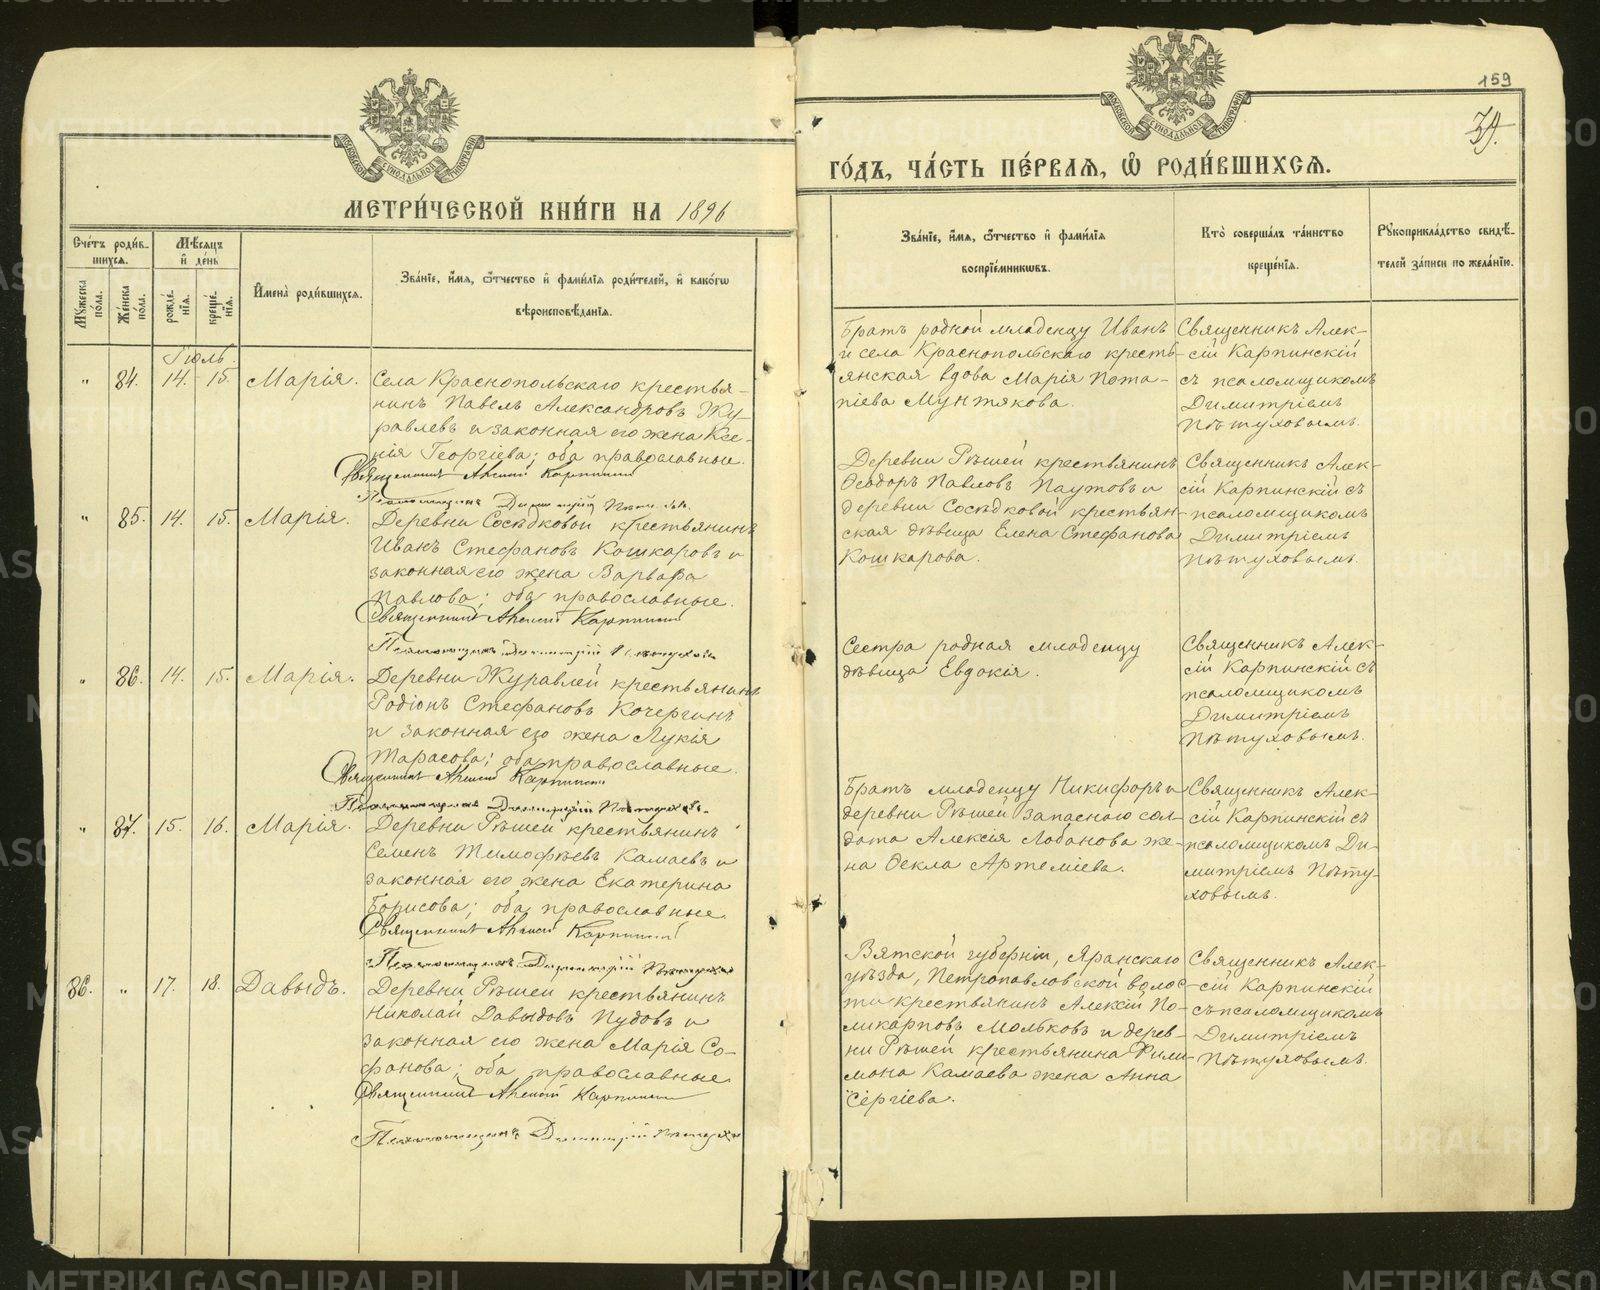 159
39.
МЕТРИ́ЧЕСКОЙ КНИ́ГИ НА 1896
ГО́ДЪ, ЧА́СТЬ ПЕ́РВАѦ, Ѽ РОДИ́ВШИХСѦ.
Сче́тъ роди́в-
шихсѧ.
Мꙋ́жеска по́ла.
Же́нска по́ла.
Мѣ́сѧцъ и҆ де́нь
рожде́-
нїѧ.
креще́-
нїѧ.
И҆мена̀ роди́вшихсѧ.
Зва́нїе, и҆́мѧ, ѻ҆́тчество и҆ фами́лїѧ роди́телей, и҆ како́гѡ
вѣроисповѣ́данїѧ.
Зва́нїе, и҆́мѧ, ѻ҆́тчество и҆ фами́лїѧ
воспрїе́мникѡвъ.
Кто̀ соверша́лъ та́инство
креще́нїѧ.
Рꙋкоприкла́дство свидѣ́-
телей за́писи по жела́нїю.
Іюль.
" 84. 14. 15. Марія.
Села Краснопольскаго крестья-
нинъ Павелъ Александровъ Жу-
равлевъ и законная его жена Ксе-
нія Георгіева; оба православные.
Священникъ Алексій Карпинскій
Псаломщикъ Димитрій Пѣтуховъ
Братъ родной младенцу Иванъ
и села Краснопольскаго кресть-
янская вдова Марія Пота-
піева Мунтякова.
Священникъ Алек-
сій Карпинскій
съ псаломщикомъ
Димитріемъ
Пѣтуховымъ.
" 85. 14. 15. Марія.
Деревни Сосѣдковой крестьянинъ
Иванъ Стефановъ Кошкаровъ и
законная его жена Варвара
Павлова; оба православные.
Священникъ Алексій Карпинскій
Псаломщикъ Димитрій Пѣтуховъ
Деревни Рѣшей крестьянинъ
Ѳеодоръ Павловъ Паутовъ и
деревни Сосѣдковой крестьян-
ская дѣвица Елена Стефанова
Кошкарова.
Священникъ Алек-
сій Карпинскій съ
псаломщикомъ
Димитріемъ
Пѣтуховымъ.
" 86. 14. 15. Марія.
Деревни Журавлей крестьянинъ
Родіонъ Стефановъ Кочергинъ
и законная его жена Лукія
Тарасова; оба православные.
Священникъ Алексій Карпинскій
Псаломщикъ Димитрій Пѣтуховъ.
Сестра родная младенцу
дѣвица Евдокія.
Священникъ Алек-
сій Карпинскій съ
псаломщикомъ
Димитріемъ
Пѣтуховымъ.
" 87. 15. 16. Марія.
Деревни Рѣшей крестьянинъ
Семенъ Тимофѣевъ Камаевъ и
законная его жена Екатерина
Борисова; оба православные.
Священникъ Алексій Карпинскій
Псаломщикъ Димитрій Пѣтуховъ
Братъ младенцу Никифоръ и
деревни Рѣшей запаснаго сол-
дата Алексія Лобанова же-
на Ѳекла Артеміева.
Священникъ Алек-
сій Карпинскій съ
псаломщикомъ Ди-
митріемъ Пѣту-
ховымъ.
86. " 17. 18. Давыдъ.
Деревни Рѣшей крестьянинъ
Николай Давыдовъ Пудовъ и
законная его жена Марія Со-
фанова; оба православные
Священникъ Алексій Карпинскій
Псаломщикъ Димитрій Пѣтуховъ
Вятской губерніи, Яранскаго
уѣзда, Петропавловской волос-
ти крестьянинъ Алексій По-
ликарповъ Мольковъ и дерев-
ни Рѣшей крестьянина Фили-
мона Камаева жена Анна
Сергіева.
Священникъ Алек-
сій Карпинскій
съ псаломщикомъ
Димитріемъ
Пѣтуховымъ.
METRIKI.GASO-URAL.RU